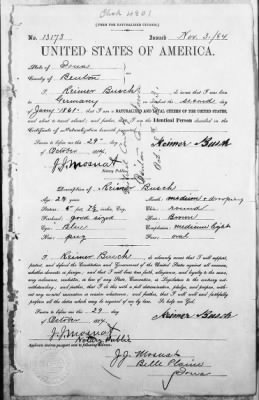 [FORM FOR NATURALIZED CITIZEN.]
No. 13173 Issued Nov. 3./84
UNITED STATES OF AMERICA.
State of Iowa
County of Benton
I Reimer Busch, do swear that I was born
in Germany on the second day
of Jany 1861; that I am a NATURALIZED AND LOYAL CITIZEN OF THE UNITED STATES,
and about to travel abroad; and further, that I am the Identical Person described in the
Certificate of Naturalization herewith presented.
Sworn to before me this 29
day of October 1884 Reimer Busch
J.J. Mosnat
Notary Public
Description of Reimer Busch
Age: 23 years Mouth: medium
Stature: 5 feet inches, Eng. Chin: round
Forehead: good sized Hair: Brown
Eyes: Blue Complexion: medium light
Nose: pug Face: oval
I Reimer Busch, do solemnly swear that I will support,
protect, and defend the Constitution and Government of the United States against all enemies,
whether domestic or foreign; and that I will bear true faith, allegiance, and loyalty to the same,
any ordinance, resolution, or law of any State, Convention, or Legislature to the contrary notwithstanding;
and further, that I do this with a full determination, pledge, and purpose, without
any mental reservation or evasion whatsoever; and further, that I will well and faithfully
perform all the duties which may be required of me by law. So help me God.
Sworn to before me this 29
day of October 1884 Reimer Busch
J.J. Mosnat
Notary Public
Applicant desires passport sent to following address:
J.J. Mosnat
Belle Plaine
Iowa